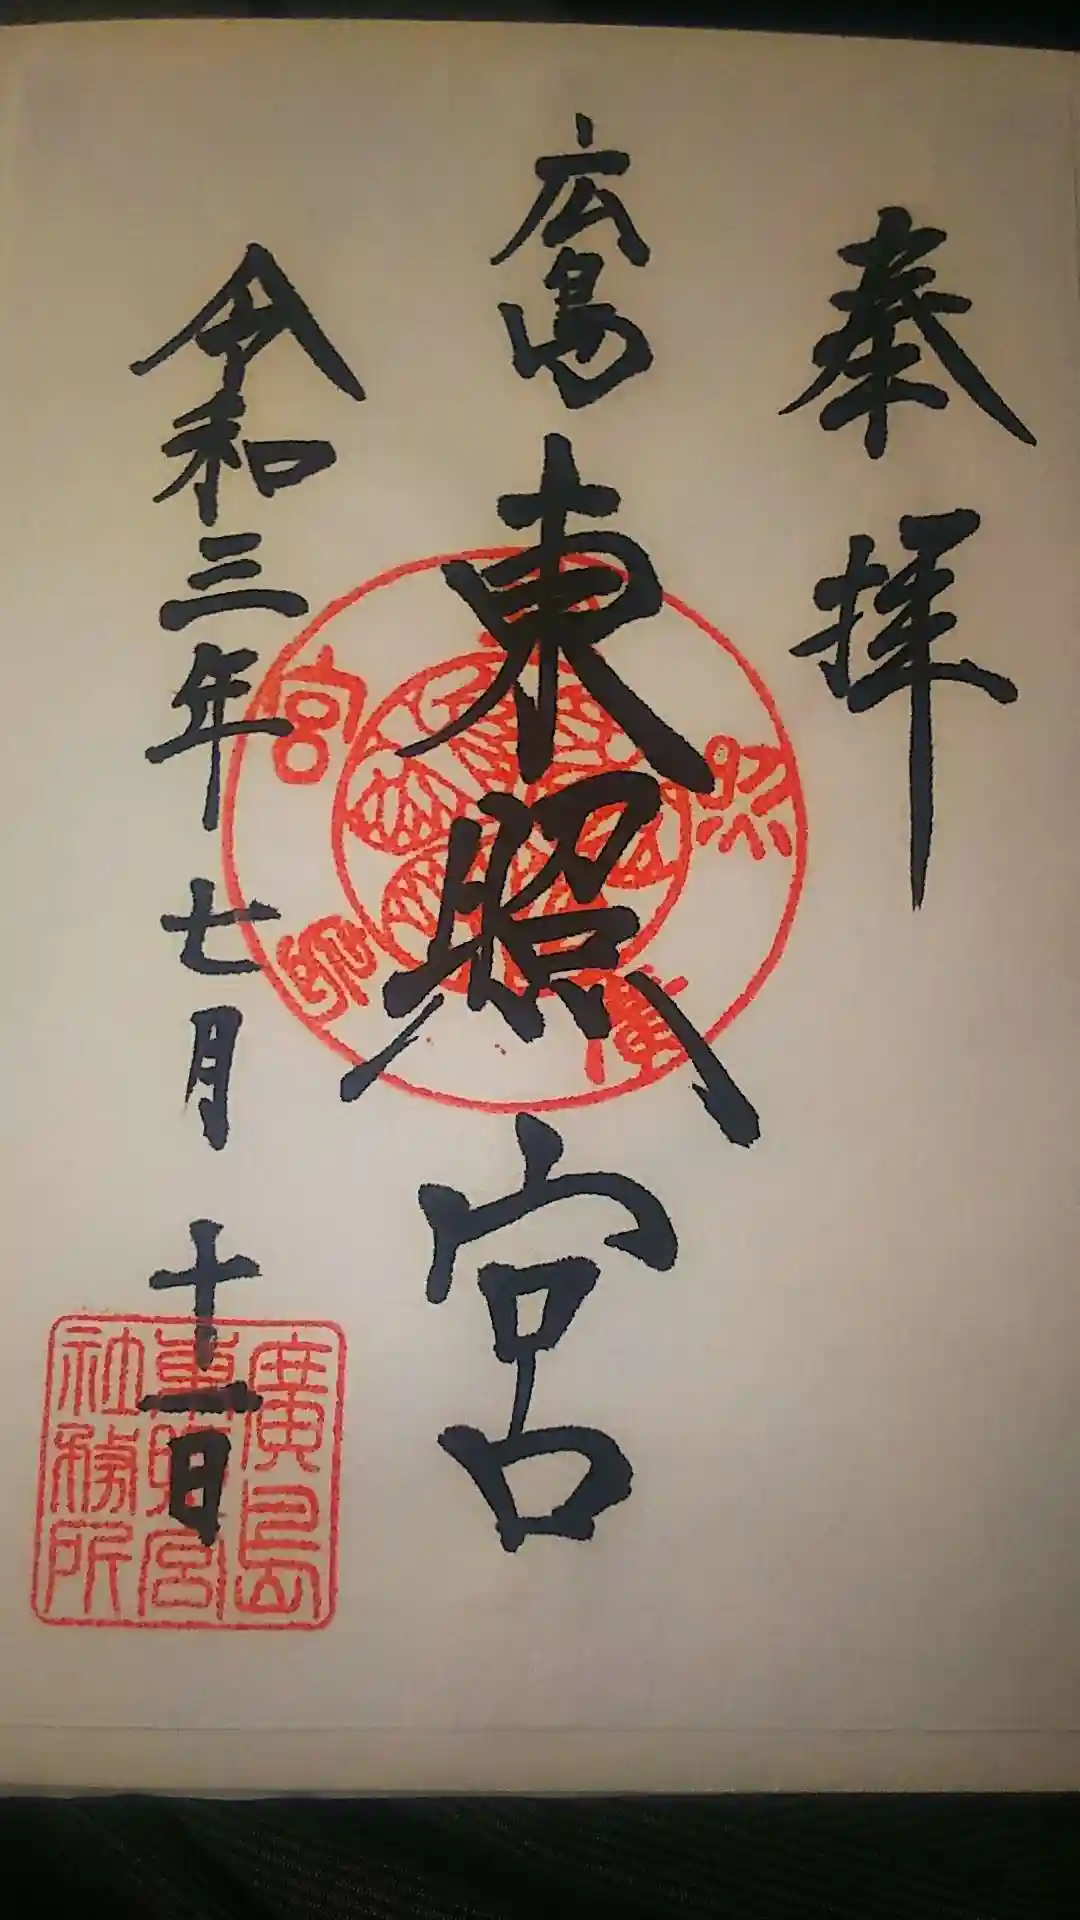 奉拝
広島東照宮
令和三年七月十一日
廣島
東照宮
社務所